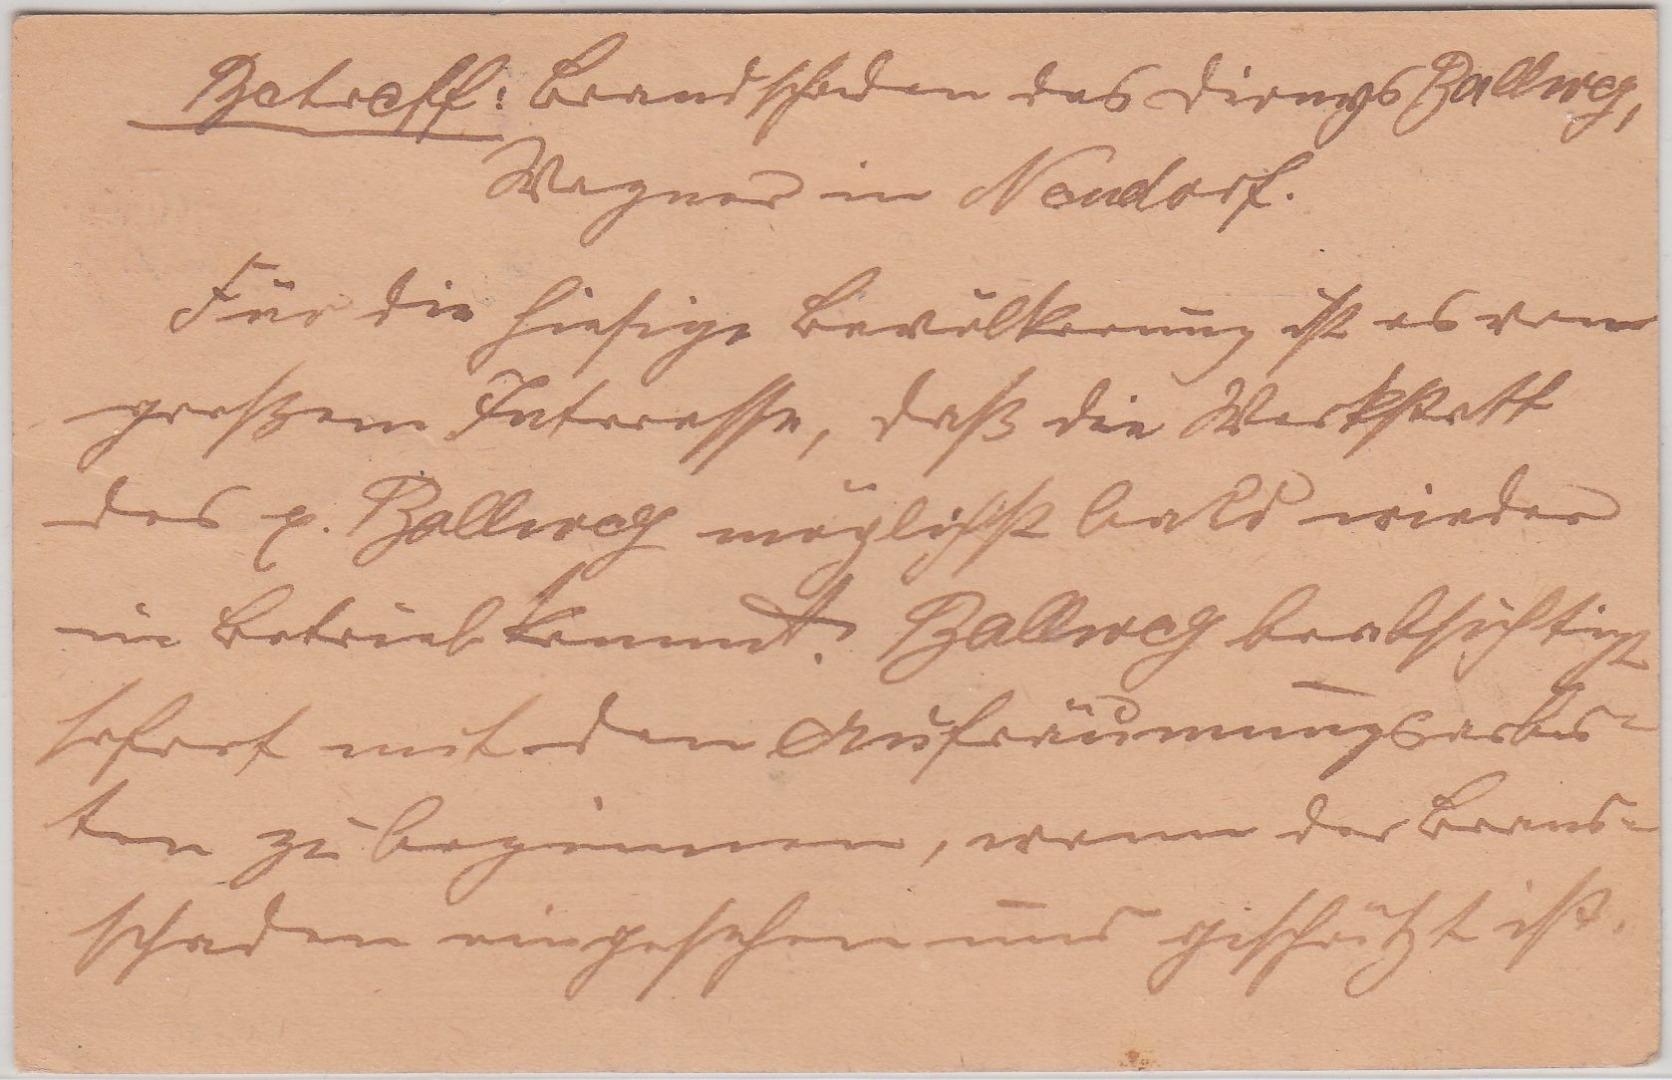 Betreff: Brandschaden des Dionys Ballweg,
Wagner in Neudorf.
Für die hiesige Bevölkerung ist es von
großem Interesse, daß die Werkstatt
des p. Ballweg möglichst bald wieder
in Betrieb kommt. Ballweg beabsichtigt
sofort mit den Aufräumungsarbei-
ten zu beginnen, wenn der Brand-
schaden eingesehen und geschätzt ist.